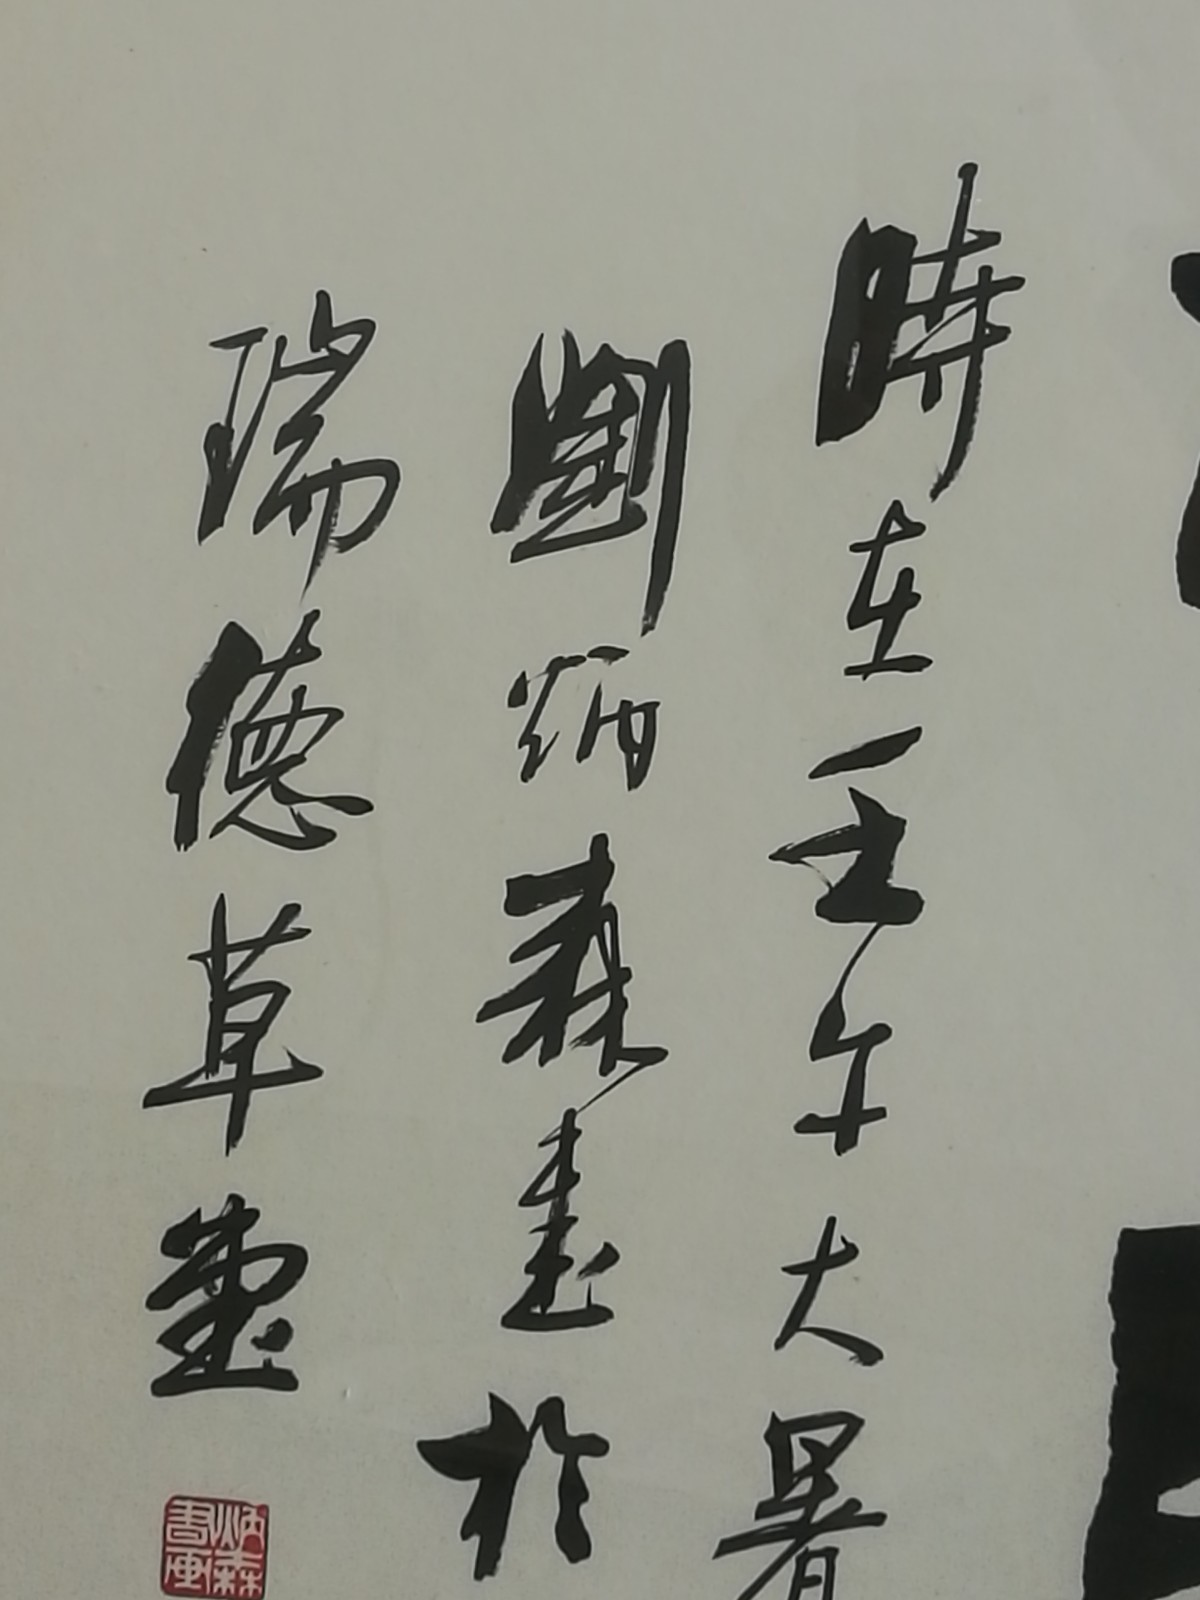 時在壬午大暑
劉炳森書於
瑞德草堂
炳森書画